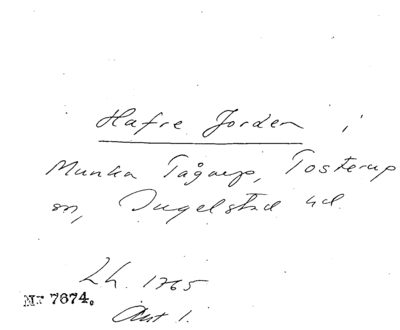 Hafre Jorden i
Munka Tågarp, Tosterup
sn, Ingelstad hd.
Lh. 1765
Nr 7674.
Ant 1.